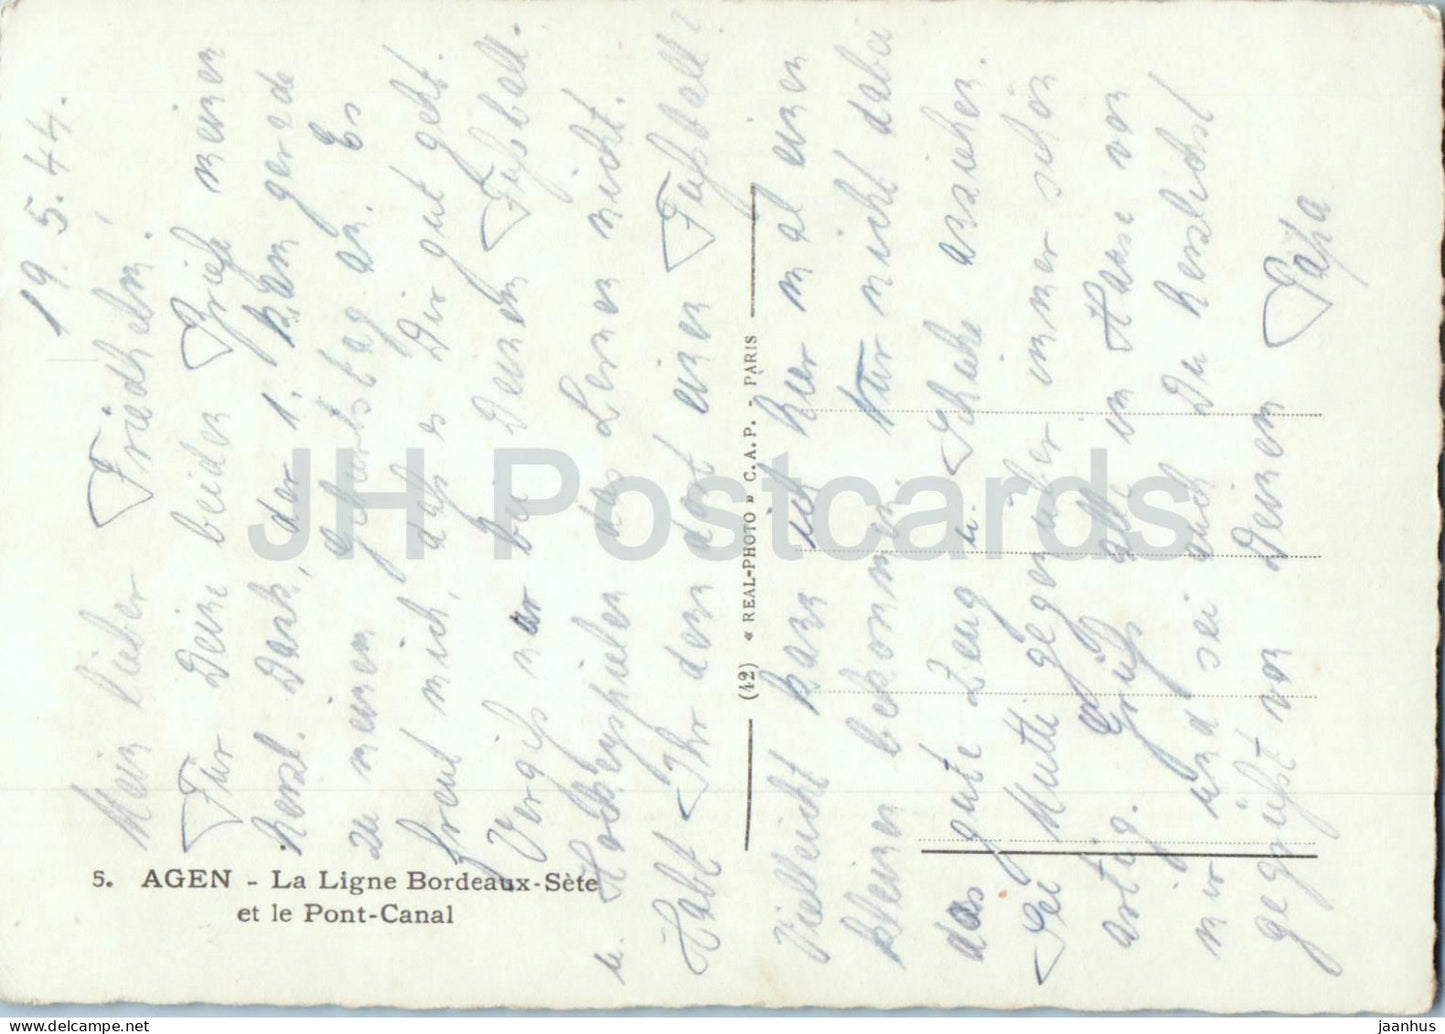 19. 5. 44.
Mein lieber Friedhelm!
Für Deine beiden Briefe meinen
herzl. Dank, der 1. kam gerade
zu meinem Geburtstag an. Es
freut mich, daß es Dir gut geht.
Vergiß nur bei Deinem Fußball
u. Hockeyspielen das Lernen nicht.
Habt Ihr denn dort einen Fußball?
Vielleicht kann ich hier mal einen
kleinen bekommen. Nur nicht dabei
das gute Zeug u. Schuhe anziehen.
Sei Mutti gegenüber immer schön
artig. Grüß all im Hause von
mir und sei auch Du herzlichst
gegrüßt von Deinem Papa
5. AGEN - La Ligne Bordeaux-Sète
et le Pont-Canal
(42) « REAL-PHOTO » C. A. P. - PARIS
JH Postcards
jaanhus / delcampe.net